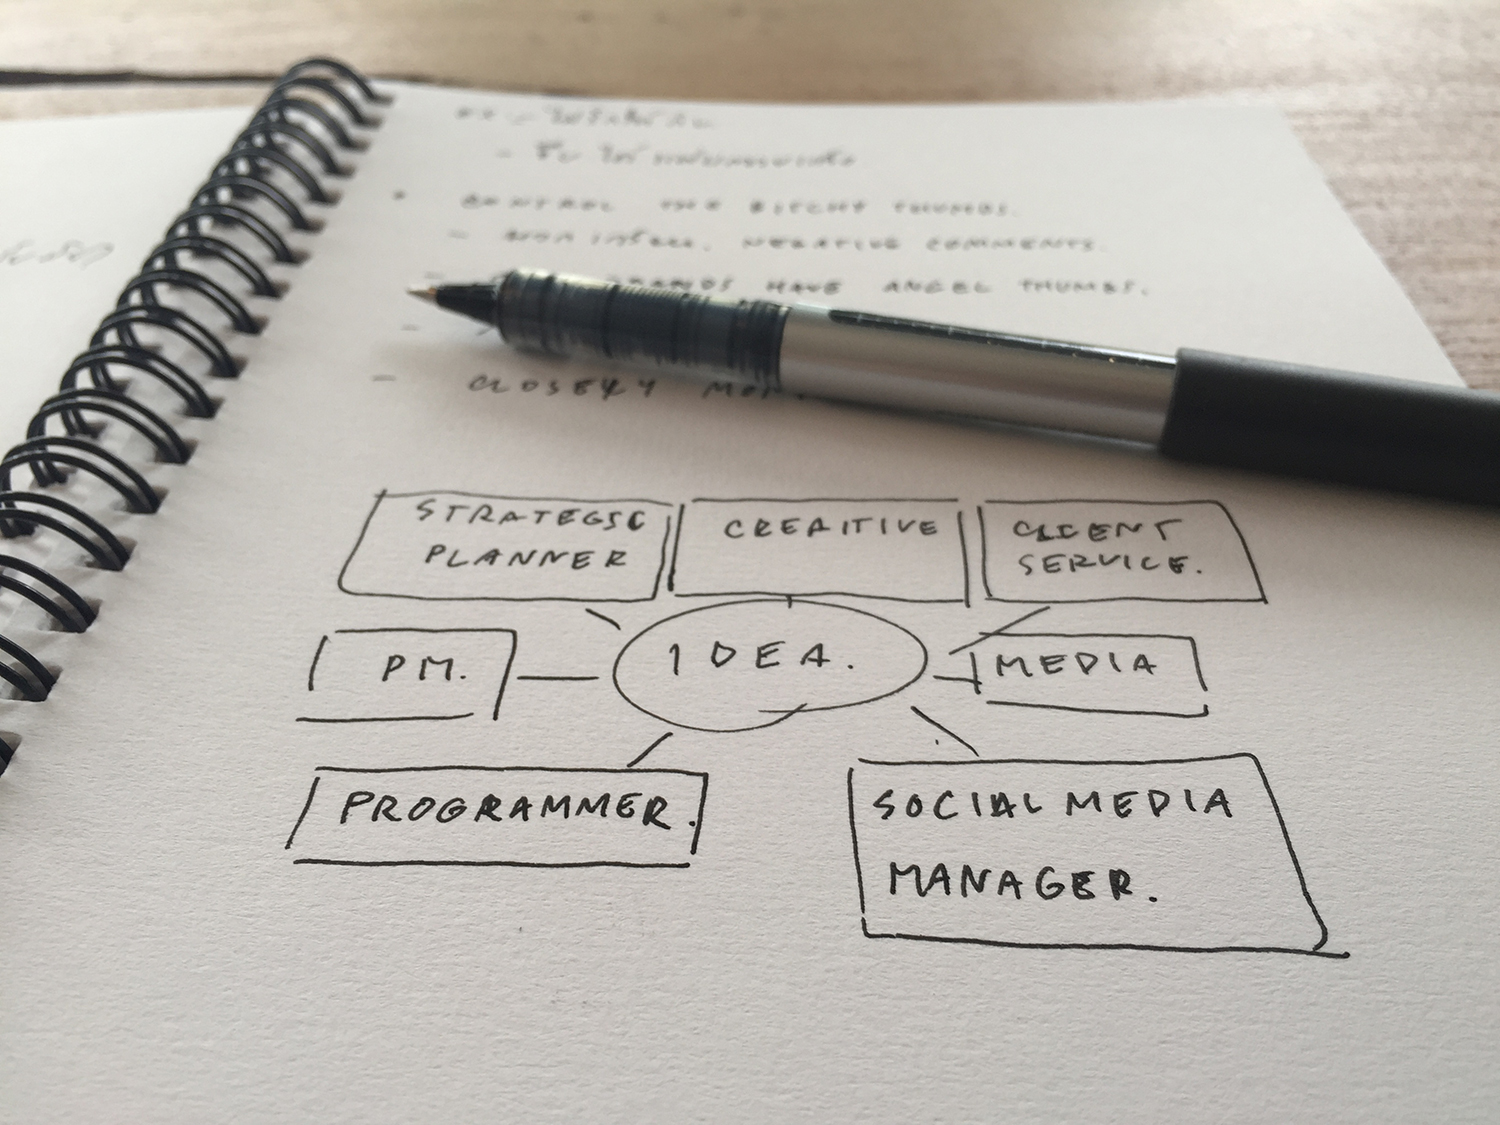 CONTROL THE BITCHY THUMBS.
NEGATIVE COMMENTS.
HAVE ANGEL THUMBS.
- CLOSELY
STRATEGIC
PLANNER
CREAITIVE
CLIENT
SERVICE.
PM.
IDEA.
MEDIA
PROGRAMMER.
SOCIAL MEDIA
MANAGER.